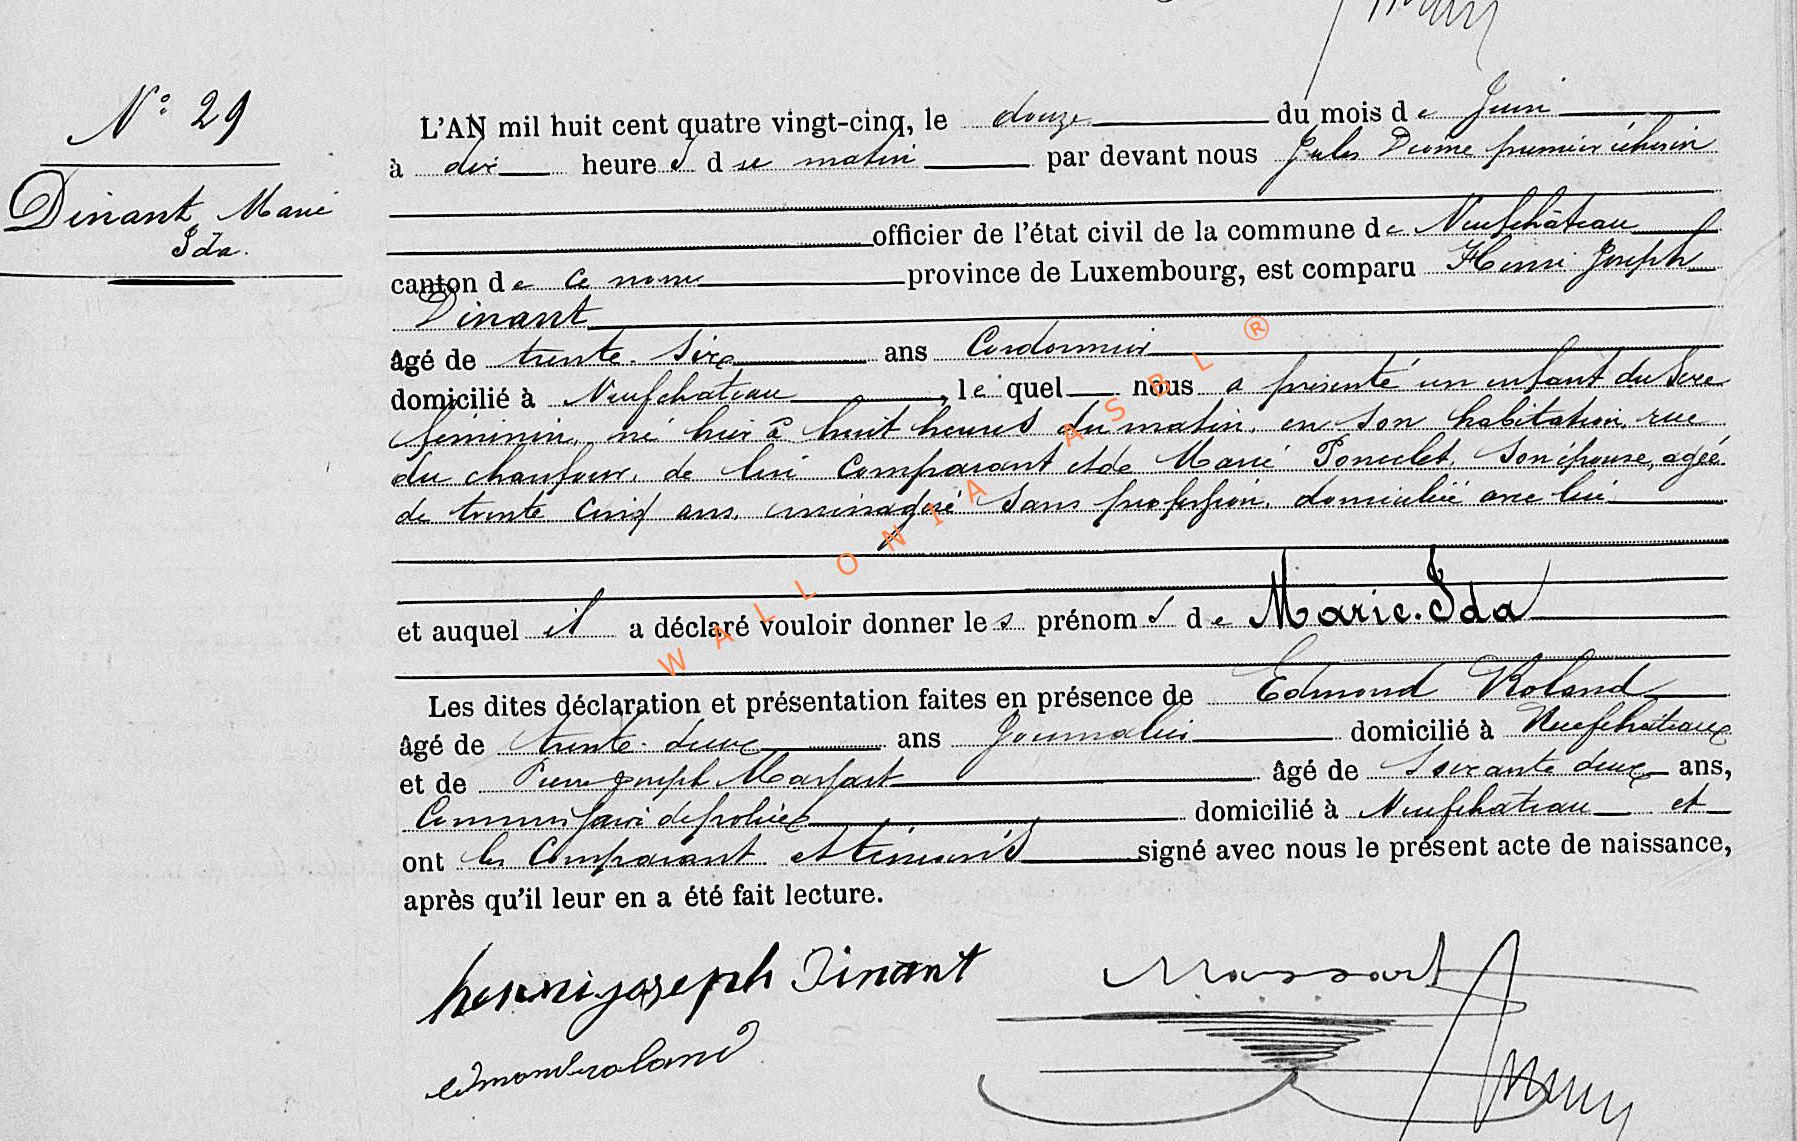 N° 29
Dinant Marie
Ida.
L'AN mil huit cent quatre vingt-cinq, le douze du mois de Juin
à dix heures d se matin par devant nous Jules premier échevin
officier de l'état civil de la commune de Neufchâteau
canton de ce nom province de Luxembourg, est comparu Henri Joseph
Dinant
âgé de trente-six ans Cordonnier
domicilié à Neufchateau, lequel nous a présenté un enfant du sexe
féminin, né hier à huit heures du matin, en son habitation, rue
du chaufour, de lui comparant et de Marie Poncelet, son épouse, agée
de trente cinq ans, sans profession, domiciliée avec lui
et auquel il a déclaré vouloir donner les prénoms de Marie-Ida
Les dites déclaration et présentation faites en présence de Edmond Roland
âgé de trente-deux ans Journalier domicilié à Neufchateau
et de Pierre Joseph Massart âgé de Soixante deux ans,
Commissaire de police domicilié à Neufchateau et
ont les Comparant et témoins signé avec nous le présent acte de naissance,
après qu'il leur en a été fait lecture.
henri joseph Dinant
Massart
edmond roland
WALLONIA ASBL ®